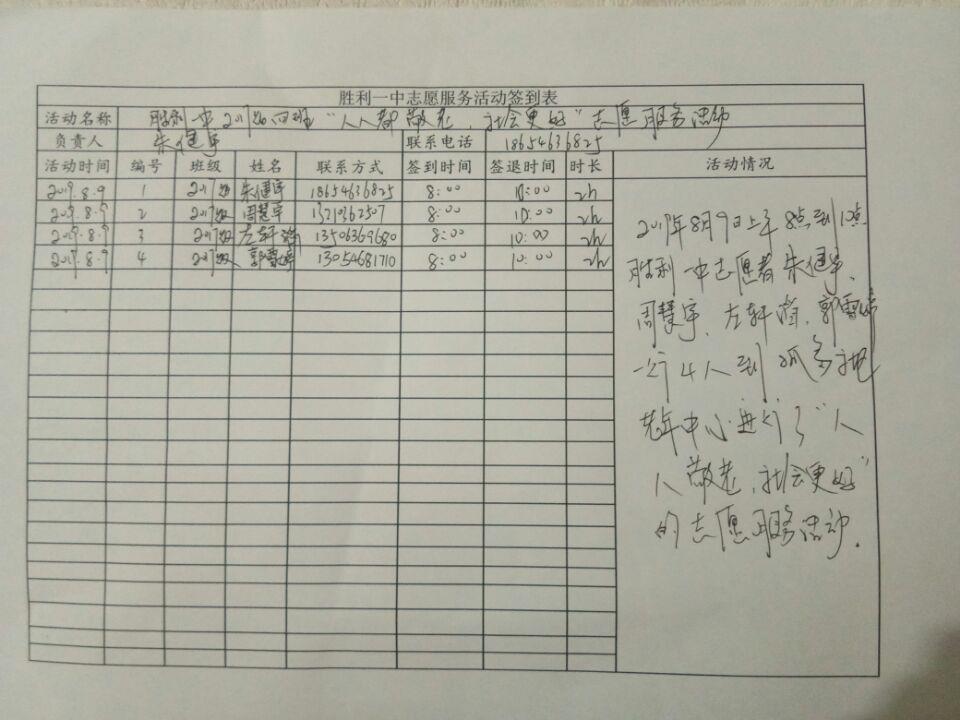 胜利一中志愿服务活动签到表
活动名称 胜利一中2017级四班“人人都敬老，社会更好”志愿服务活动
负责人 朱健宇 联系电话 18654636825
活动时间 编号 班级 姓名 联系方式 签到时间 签退时间 时长 活动情况
2019.8.9 1 2017级 朱健宇 18654636825 8:00 10:00 2h
2019.8.9 2 2017级 周慧宇 13210362507 8:00 10:00 2h
2019.8.9 3 2017级 左轩 13506369680 8:00 10:00 2h
2019.8.9 4 2017级 郭雪婷 13054681710 8:00 10:00 2h
2019年8月9日上午8点到10点
胜利一中志愿者朱健宇、
周慧宇、左轩 、郭雪婷
一行4人到 社区
老年中心进行了“人
人敬老，社会更好”
的志愿服务活动.